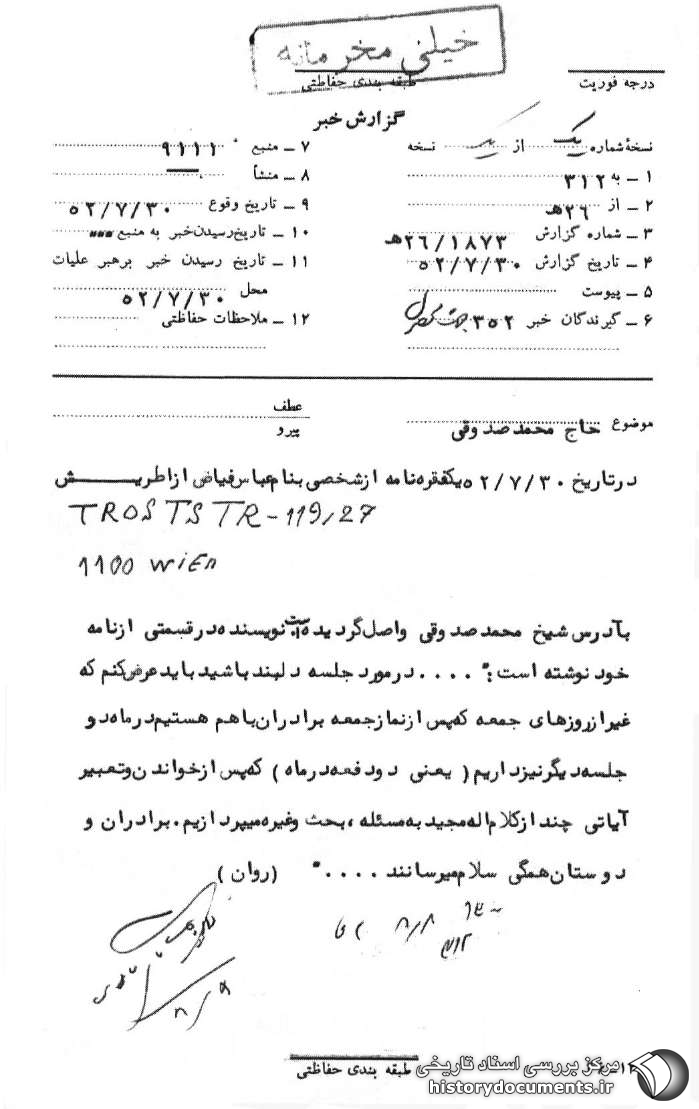 خیلی محرمانه
درجه فوریت
طبقه بندی حفاظتی
گزارش خبر
نسخهٔ شماره یک از یک نسخه
۱ ـ به ۳۱۲
۲ ـ از ۲۶ هـ
۳ ـ شماره گزارش ۲۶/۱۸۷۳ هـ
۴ ـ تاریخ گزارش ۵۲/۷/۳۰
۵ ـ پیوست
۶ ـ گیرندگان خبر ۳۵۲
۷ ـ منبع ۹۱۱۱
۸ ـ منشأ
۹ ـ تاریخ وقوع ۵۲/۷/۳۰
۱۰ ـ تاریخ رسیدن خبر به منبع
۱۱ ـ تاریخ رسیدن خبر برهبر عملیات
محل ۵۲/۷/۳۰
۱۲ ـ ملاحظات حفاظتی
موضوع حاج محمد صدوقی
عطف
پیرو
در تاریخ ۵۲/۷/۳۰ یکفقره نامه از شخصی بنام عباس فیاض از اطریش
TROSTSTR-119/27
1100 WIEN
بآدرس شیخ محمد صدوقی واصل گردیده است نویسنده در قسمتی از نامه
خود نوشته است: " .... در مورد جلسه دلبند باشید باید عرض کنم که
غیر از روزهای جمعه که پس از نماز جمعه برادران با هم هستیم در ماه دو
جلسه دیگر نیز داریم ( یعنی دو دفعه در ماه ) که پس از خواندن و تعبیر
آیاتی چند از کلام اله مجید به مسئله ، بحث و غیره میپردازیم. برادران و
دوستان همگی سلام میرسانند .... " (روان )
۳۱۲
۸/۸
۸/۸
طبقه بندی حفاظتی
مرکز بررسی اسناد تاریخی
historydocuments.ir